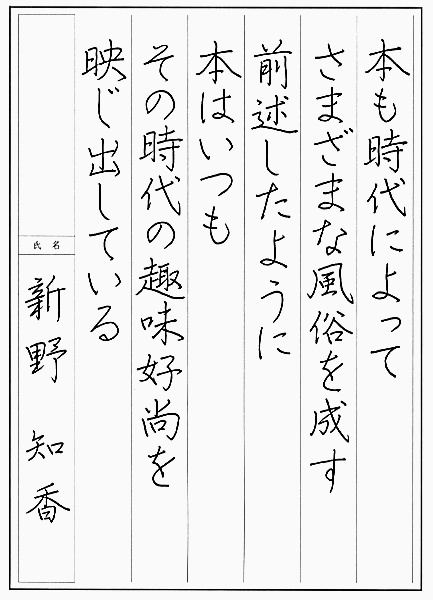 本も時代によって
さまざまな風俗を成す
前述したように
本はいつも
その時代の趣味好尚を
映じ出している
氏名
新野 知香